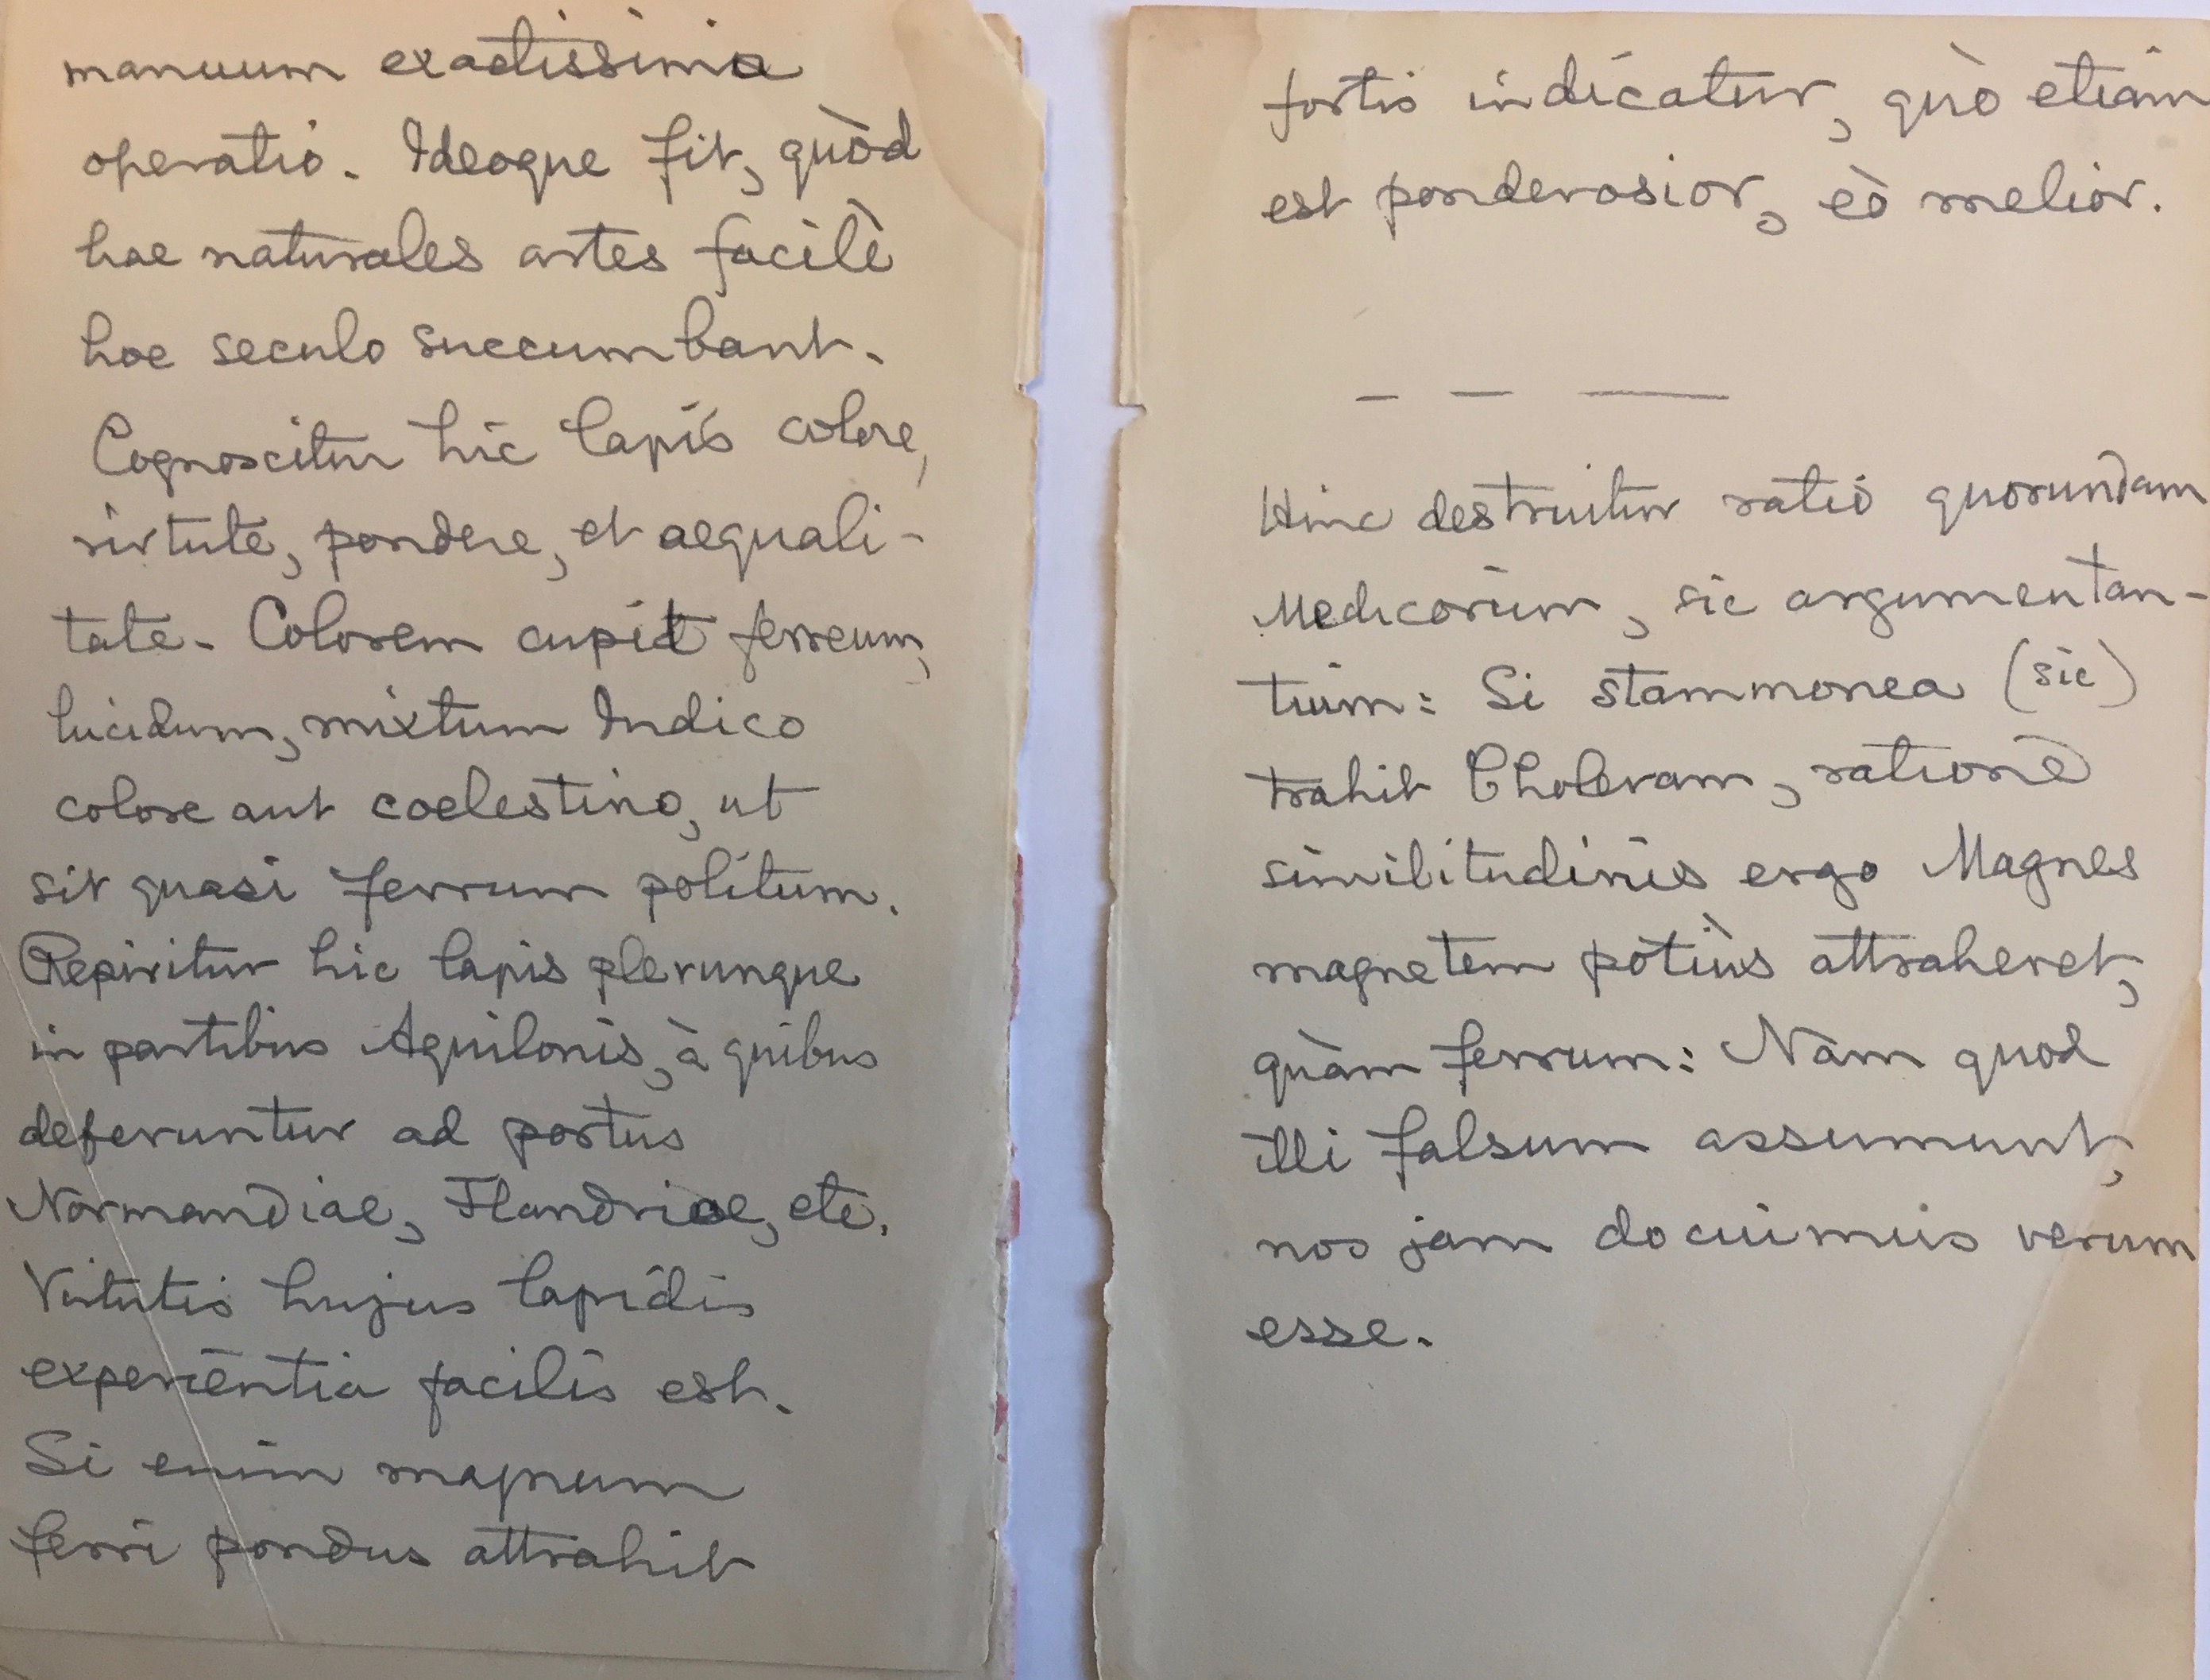 manuum exactissima
operatio. Ideoque fit, quòd
hae naturales artes facilè
hoc seculo succumbant.
Cognoscitur hic lapis colore,
virtute, pondere, et aequali-
tate. Colorem cupit ferreum,
lucidum, mixtum Indico
colore aut coelestino, ut
sit quasi ferrum politum.
Repiritur hic lapis plerunque
in partibus Aquilonis, à quibus
deferuntur ad portus
Normandiae, Flandriae, etc.
Virtutis hujus lapidis
experientia facilis est.
Si enim magnum
ferri pondus attrahit
fortis indicatur, quò etiam
est ponderosior, eò melior.
Hinc destruitur ratio quorundam
Medicorum, sic argumentan-
tium: Si stammonea (sic)
trahit Choleram, ratione
similitudinis ergo Magnes
magnetem potiùs attraheret,
quàm ferrum: Nam quod
illi falsum assumunt,
nos jam docuimus verum
esse.